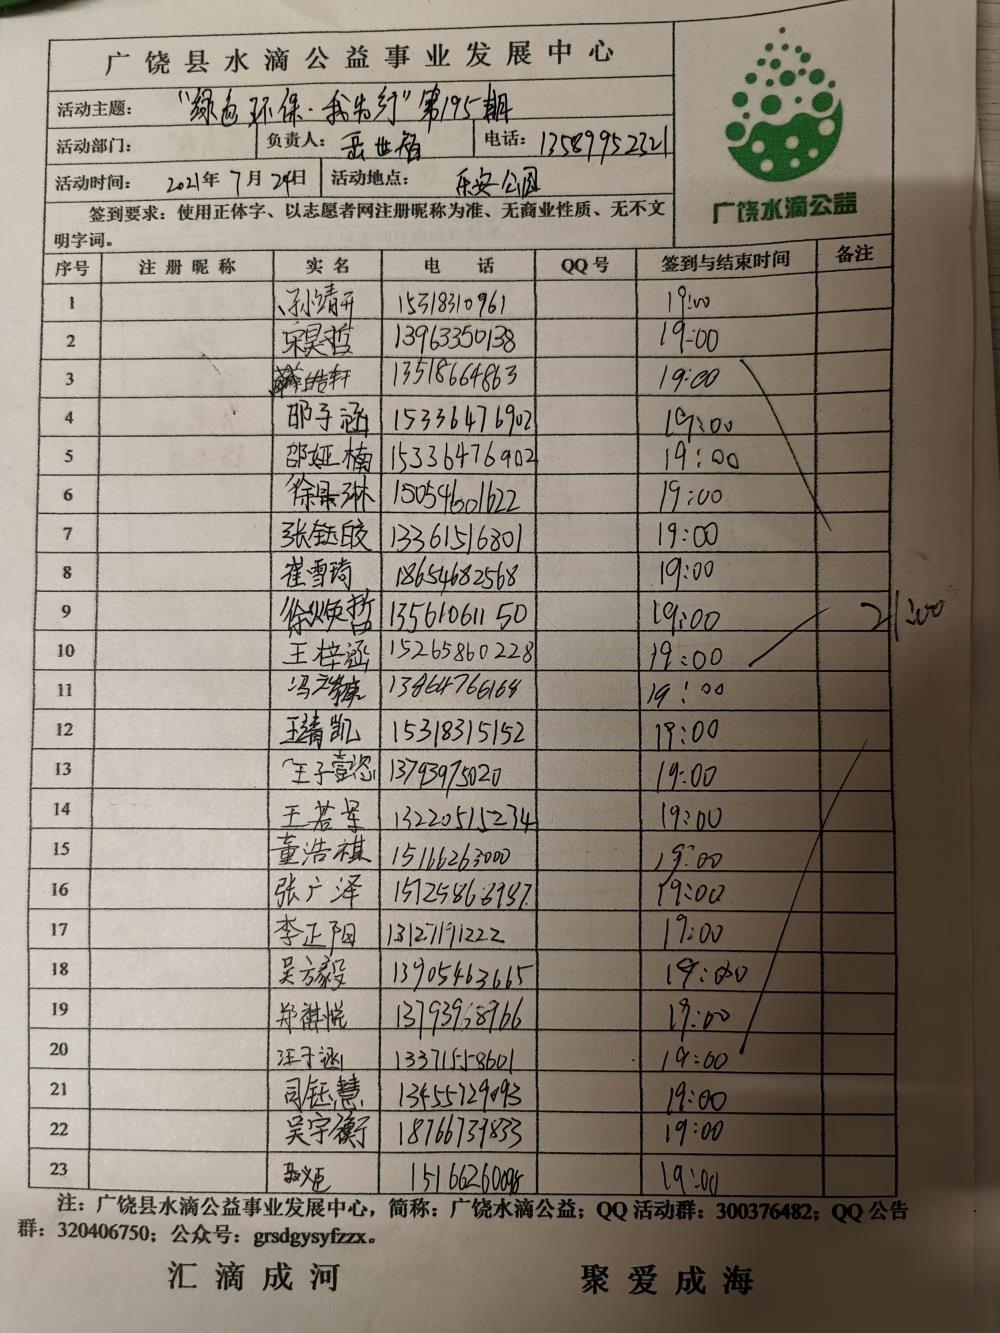 广饶县水滴公益事业发展中心
广饶水滴公益
活动主题: "绿色环保·我先行"第195期
活动部门: 负责人: 世 电话: 13589952321
活动时间: 2021年7月24日 活动地点: 乐安公园
签到要求: 使用正体字、以志愿者网注册昵称为准、无商业性质、无不文
明字词。
序号 注册昵称 实名 电话 QQ号 签到与结束时间 备注
1 孙靖开 15318310961 19:00
2 宋昊哲 13963350138 19:00
3 皓轩 13518664863 19:00
4 邵子涵 15336476902 19:00
5 邵娅楠 15336476902 19:00
6 徐景琳 15054601622 19:00
7 张钰皎 13361516801 19:00
8 崔雪琦 18654682568 19:00
9 徐 哲 13561061150 19:00
21:00
10 王梓涵 15265860228 19:00
11 冯 13964766164 19:00
12 王靖凯 15318315152 19:00
13 王子壹 13793975020 19:00
14 王若 13220515234 19:00
15 董浩祺 15166263000 19:00
16 张广泽 19:00
17 李正阳 13127191222 19:00
18 吴方毅 13905463665 19:00
19 郑 悦 13793968966 19:00
20 汪子涵 13371558601 19:00
21 司钰慧 13455729093 19:00
22 吴宇衡 18766739833 19:00
23 19:00
注: 广饶县水滴公益事业发展中心, 简称: 广饶水滴公益; QQ活动群: 300376482; QQ公告
群: 320406750; 公众号: grsdgysyfzzx。
汇滴成河 聚爱成海